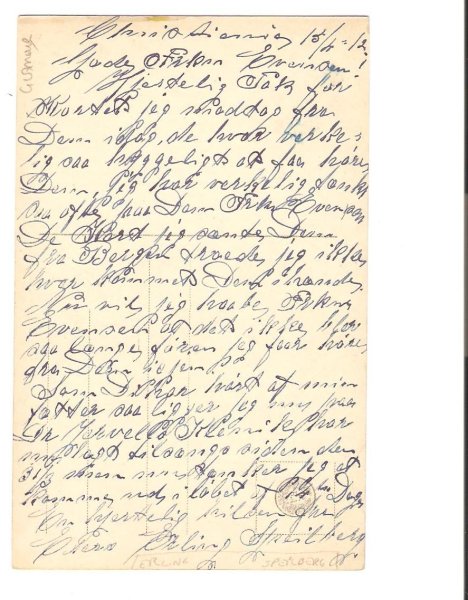 Christiania 15/4-12.
Gode Frkn Evensen!
Hjertelig Tak for
Kortet jeg modtog fra
Dem idag, de var verke-
lig saa hyggeligt at faa høre
Dem, jeg har verkelig tænkt
saa ofte paa Dem Frkn Evensen
De Kort jeg sænte Dem
fra Bergen troede jeg ikke
var kommet Dem ihænde.
Nu vil jeg haabe Frkn
Evensen at det ikke blir
saa længe før en jeg faar høre
fra Dem igjen
som De har hørt at min
fatter saa ligger jeg nu paa
Dr Klenik har
nu ligt tilsengs siden den
31/3 men nu tænker jeg at
komme ud i løbet af 14 Dage
En hjertelig hilsen fra
Erling Speilberg
ERLING SPEILBERG